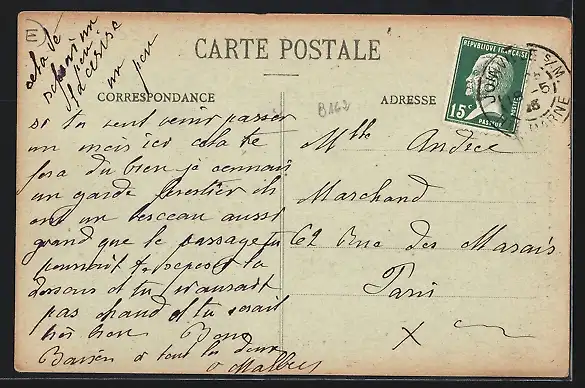 E
cela te
un peu
CARTE POSTALE
CORRESPONDANCE
ADRESSE
B162
REPUBLIQUE FRANÇAISE
15c
POSTES
PASTEUR
si tu veut venir passer
un mois ici cela te
fera du bien je connais
un garde forestier ils
ont un berceau aussi
grand que le passage tu
pourrait te reposer la
dessous et tu n'aurait
pas chaud et tu serait
très bien Bons
Baisers a tous les deux
Mlle Andrée
Marchand
62 Rue des Marais
Paris
X